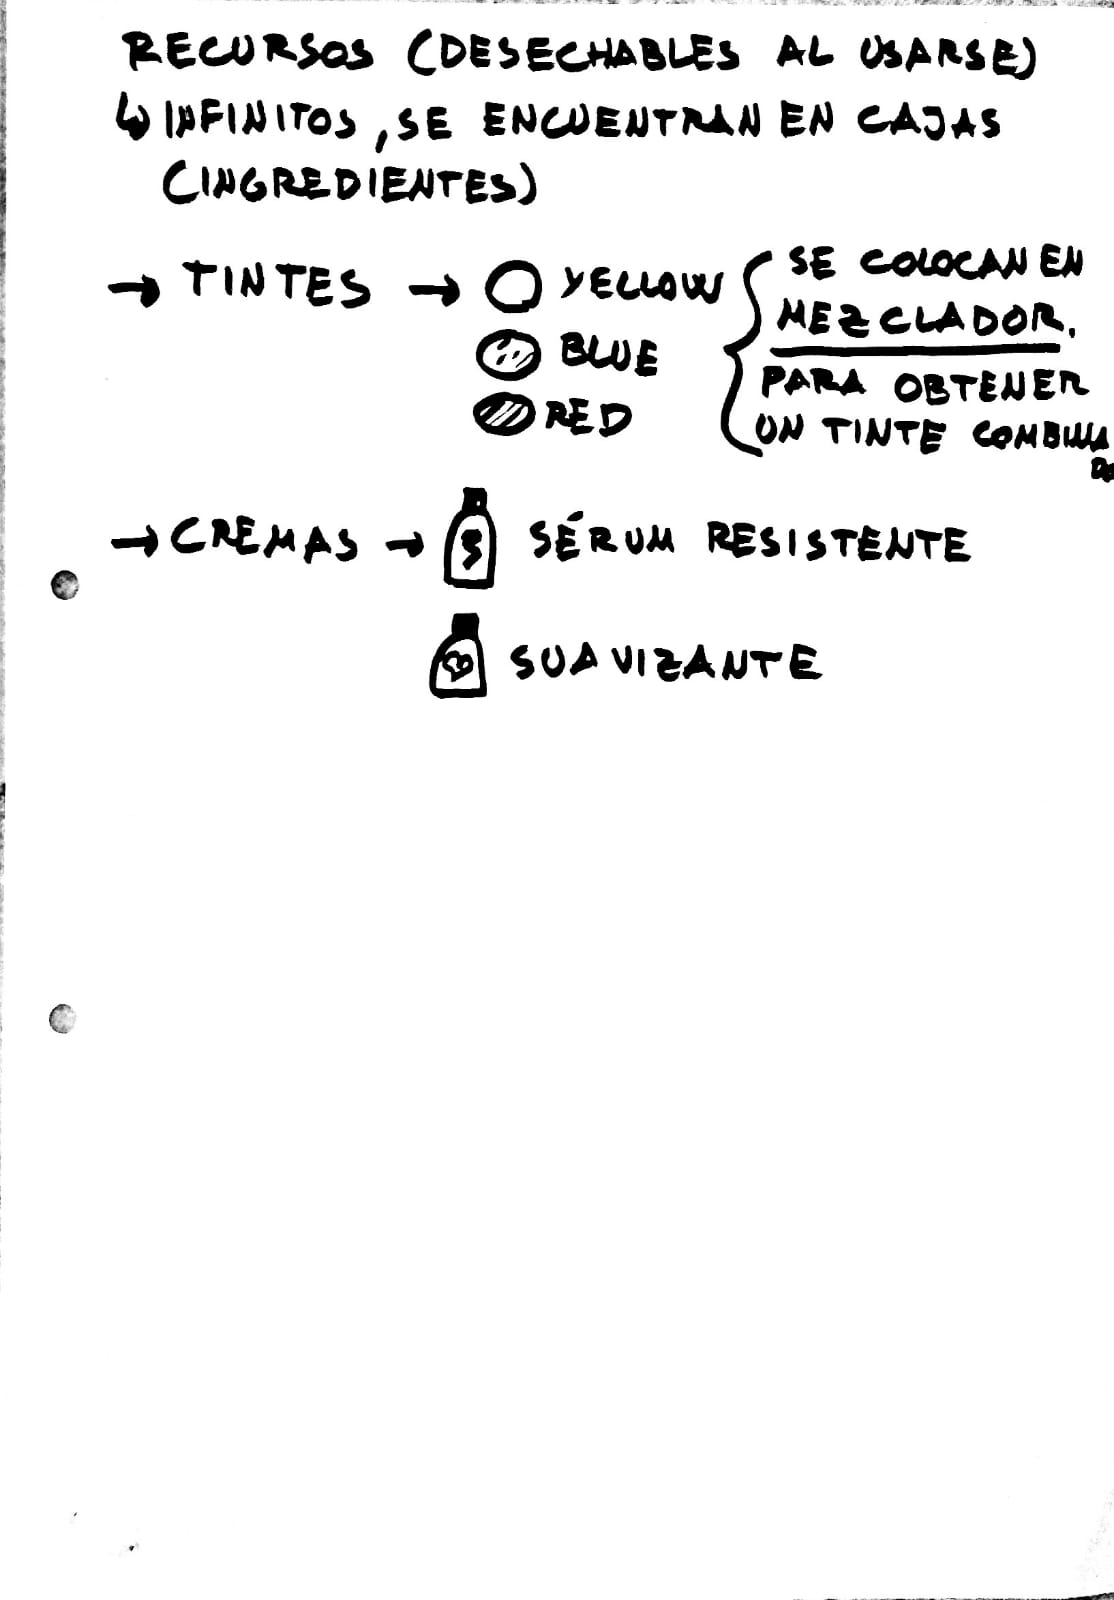 RECURSOS (DESECHABLES AL USARSE)
↳ INFINITOS, SE ENCUENTRAN EN CAJAS
(INGREDIENTES)
→ TINTES → YELLOW
BLUE
RED
SE COLOCAN EN
MEZCLADOR.
PARA OBTENER
UN TINTE COMBINA
DO
→ CREMAS → SÉRUM RESISTENTE
SUAVIZANTE